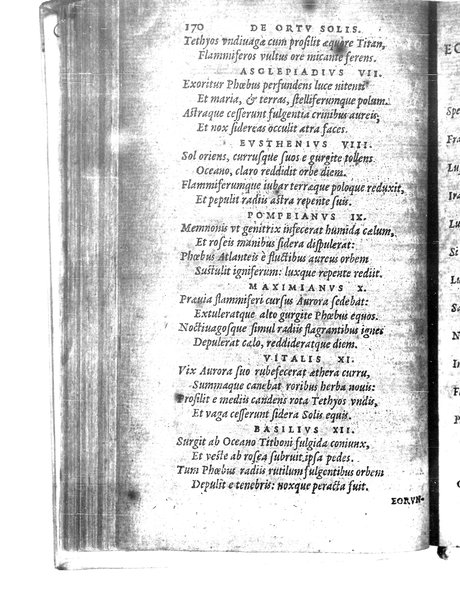 170 DE ORTV SOLIS.
Tethyos vndiuaga cum prosilit æquore Titan,
Flammiferos vultus ore micante ferens.
ASCLEPIADIVS VII.
Exoritur Phœbus perfundens luce nitenti
Et maria, & terras, stelliferumque polum.
Astraque cesserunt fulgentia crinibus aureis,
Et nox sidereas occulit atra faces.
EVSTHENIVS VIII.
Sol oriens, currusque suos e gurgite tollens
Oceano, claro reddidit orbe diem.
Flammiferumque iubar terræque poloque reduxit,
Et pepulit radiis astra repente suis.
POMPEIANVS IX.
Memnonis vt genitrix infecerat humida cælum,
Et roseis manibus sidera dispulerat:
Phœbus Atlanteis è fluctibus aureus orbem
Sustulit igniferum: luxque repente rediit.
MAXIMIANVS X.
Præuia flammiferi cursus Aurora sedebat:
Extuleratque alto gurgite Phœbus equos.
Noctiuagosque simul radiis flagrantibus ignes
Depulerat cælo, reddideratque diem.
VITALIS XI.
Vix Aurora suo rubefecerat æthera curru,
Summaque canebat roribus herba nouis:
Prosilit e mediis candens rota Tethyos vndis,
Et vaga cesserunt sidera Solis equis.
BASILIVS XII.
Surgit ab Oceano Tithoni fulgida coniunx,
Et veste ab rosea subruit ipsa pedes.
Tum Phœbus radiis rutilum fulgentibus orbem
Depulit e tenebris: noxque peracta fuit.
EORVN-